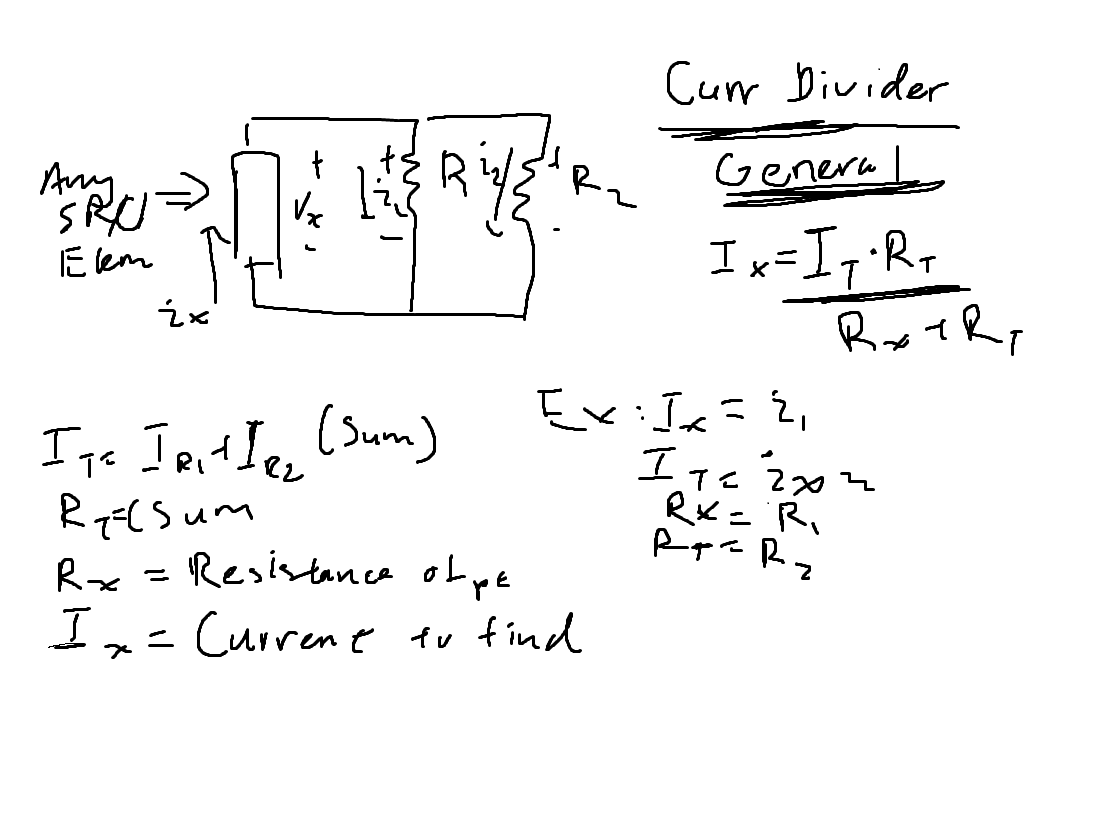 Curr Divider
General
I_x = I_T · R_T
R_x + R_T
Any
SRC/
Elem
i_x
+
V_x
-
+
i_1
-
R
i_2
+
R_2
I_T = I_R1 + I_R2 (Sum)
R_T = (Sum
R_x = Resistance of
I_x = Current to find
Ex: I_x = i_1
I_T = i_x
R_x = R_1
R_T = R_2